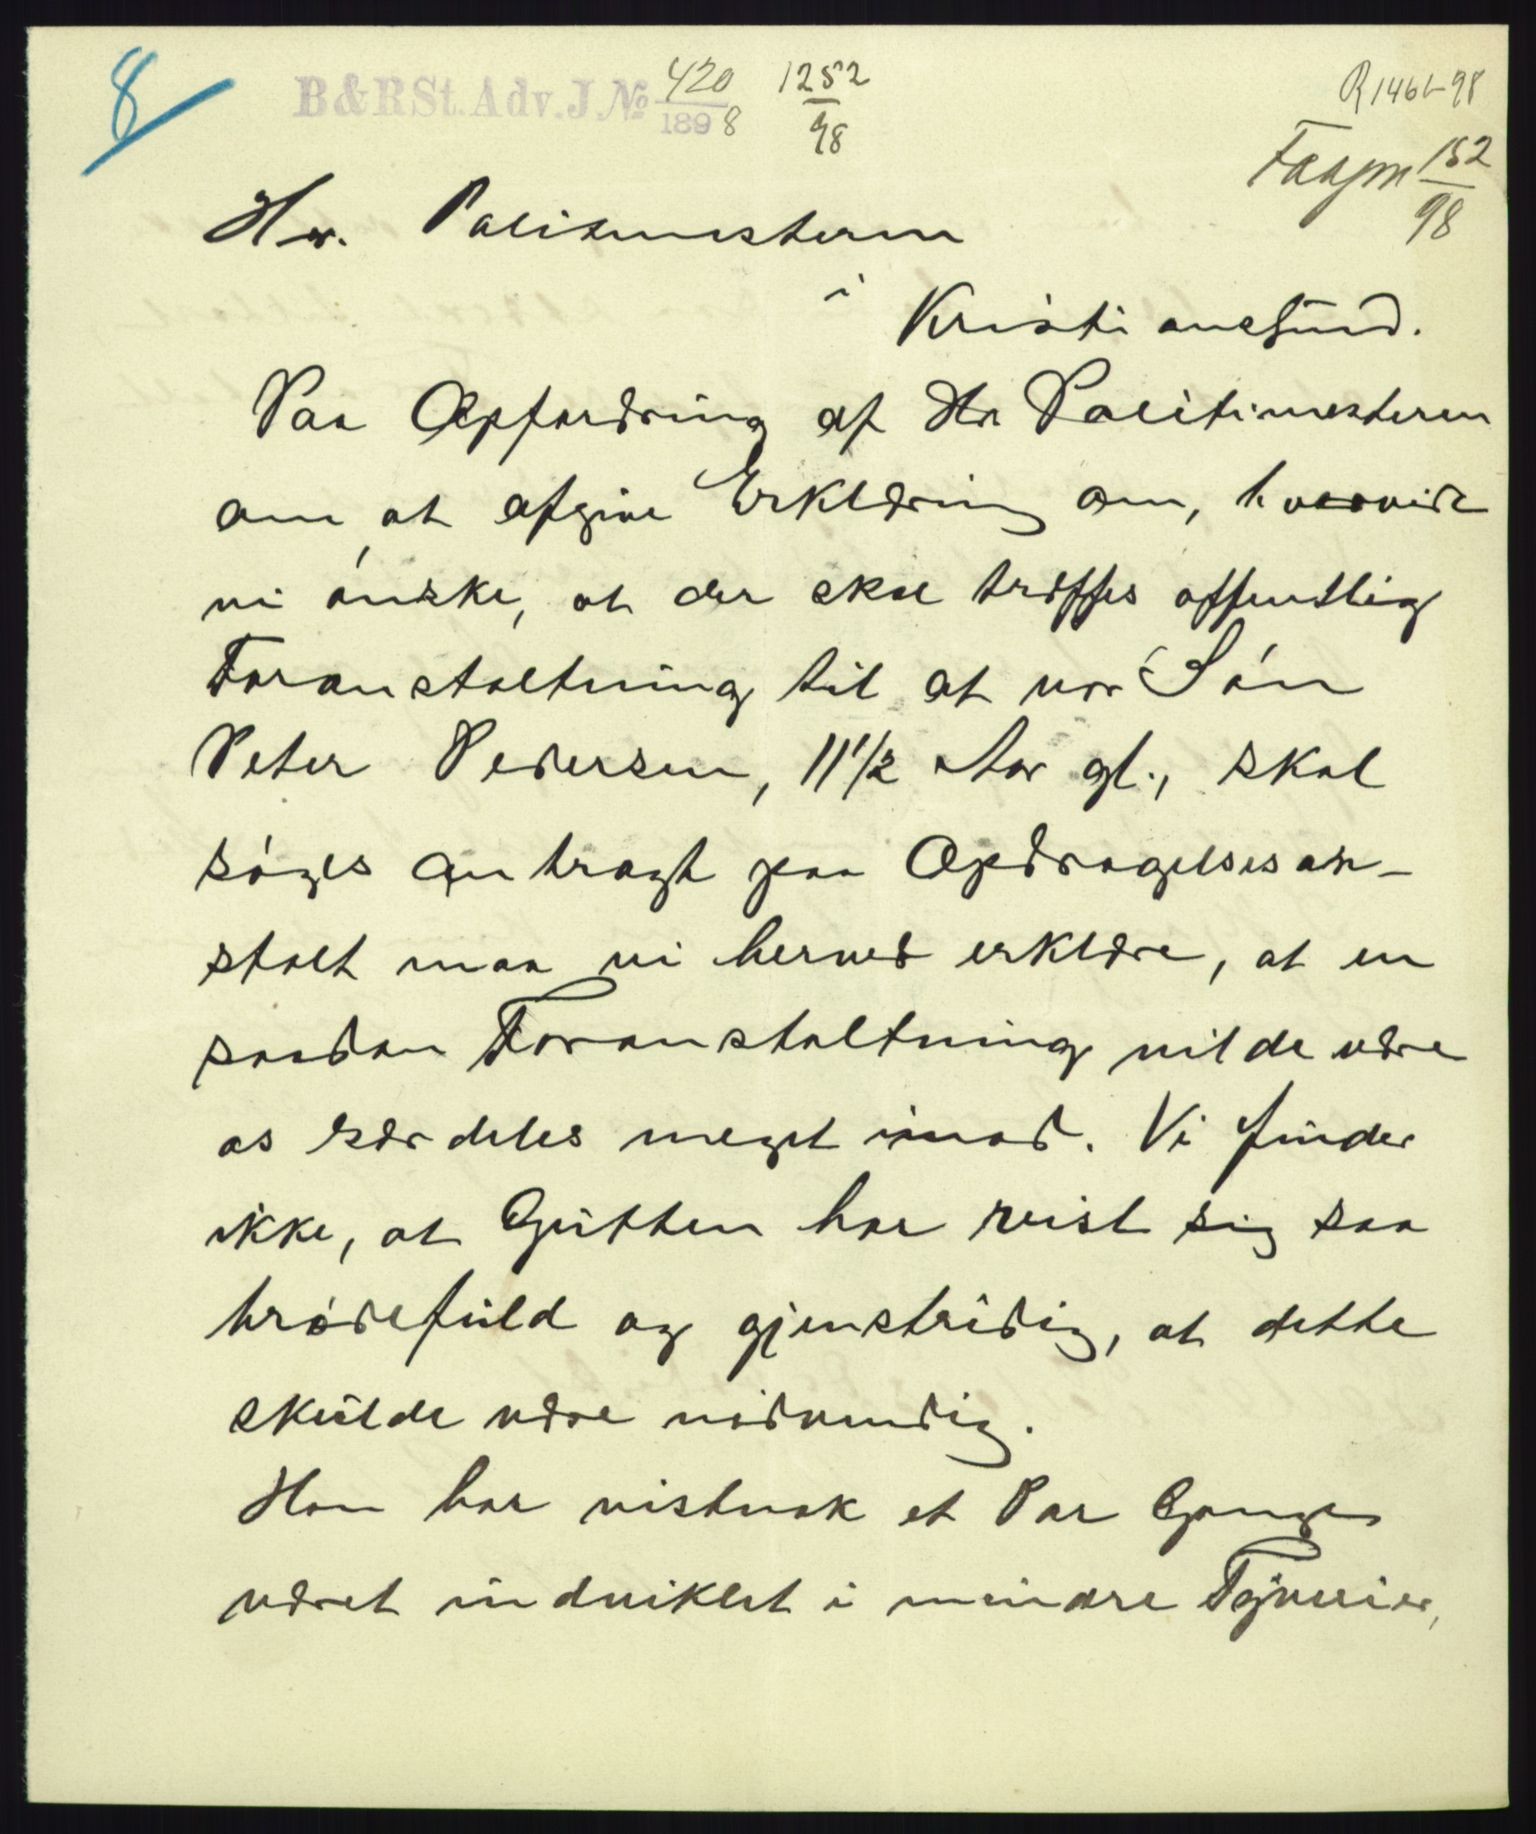 8
B&RSt.Adv.J.№ 420/1898 1252/98
R 1466-98
152/98
Hr. Politimesteren
i
Kristianssund.
Paa Opfordring af Hr. Politimesteren
om at afgive Erklæring om, hvorvidt
vi ønske, at der skal træffes offentlig
Foranstaltning til at vor Søn
Peter Pedersen, 11 1/2 Aar gl., skal
søges anbragt paa Opdragelsesan-
stalt maa vi herved erklære, at en
saadan Foranstaltning vilde være
os særdeles meget imod. Vi finder
ikke, at Gutten har vist sig saa
brødefuld og gjenstridig, at dette
skulde være nødvendig.
Han har vistnok et Par Gange
været indviklet i mindre Tyverier,